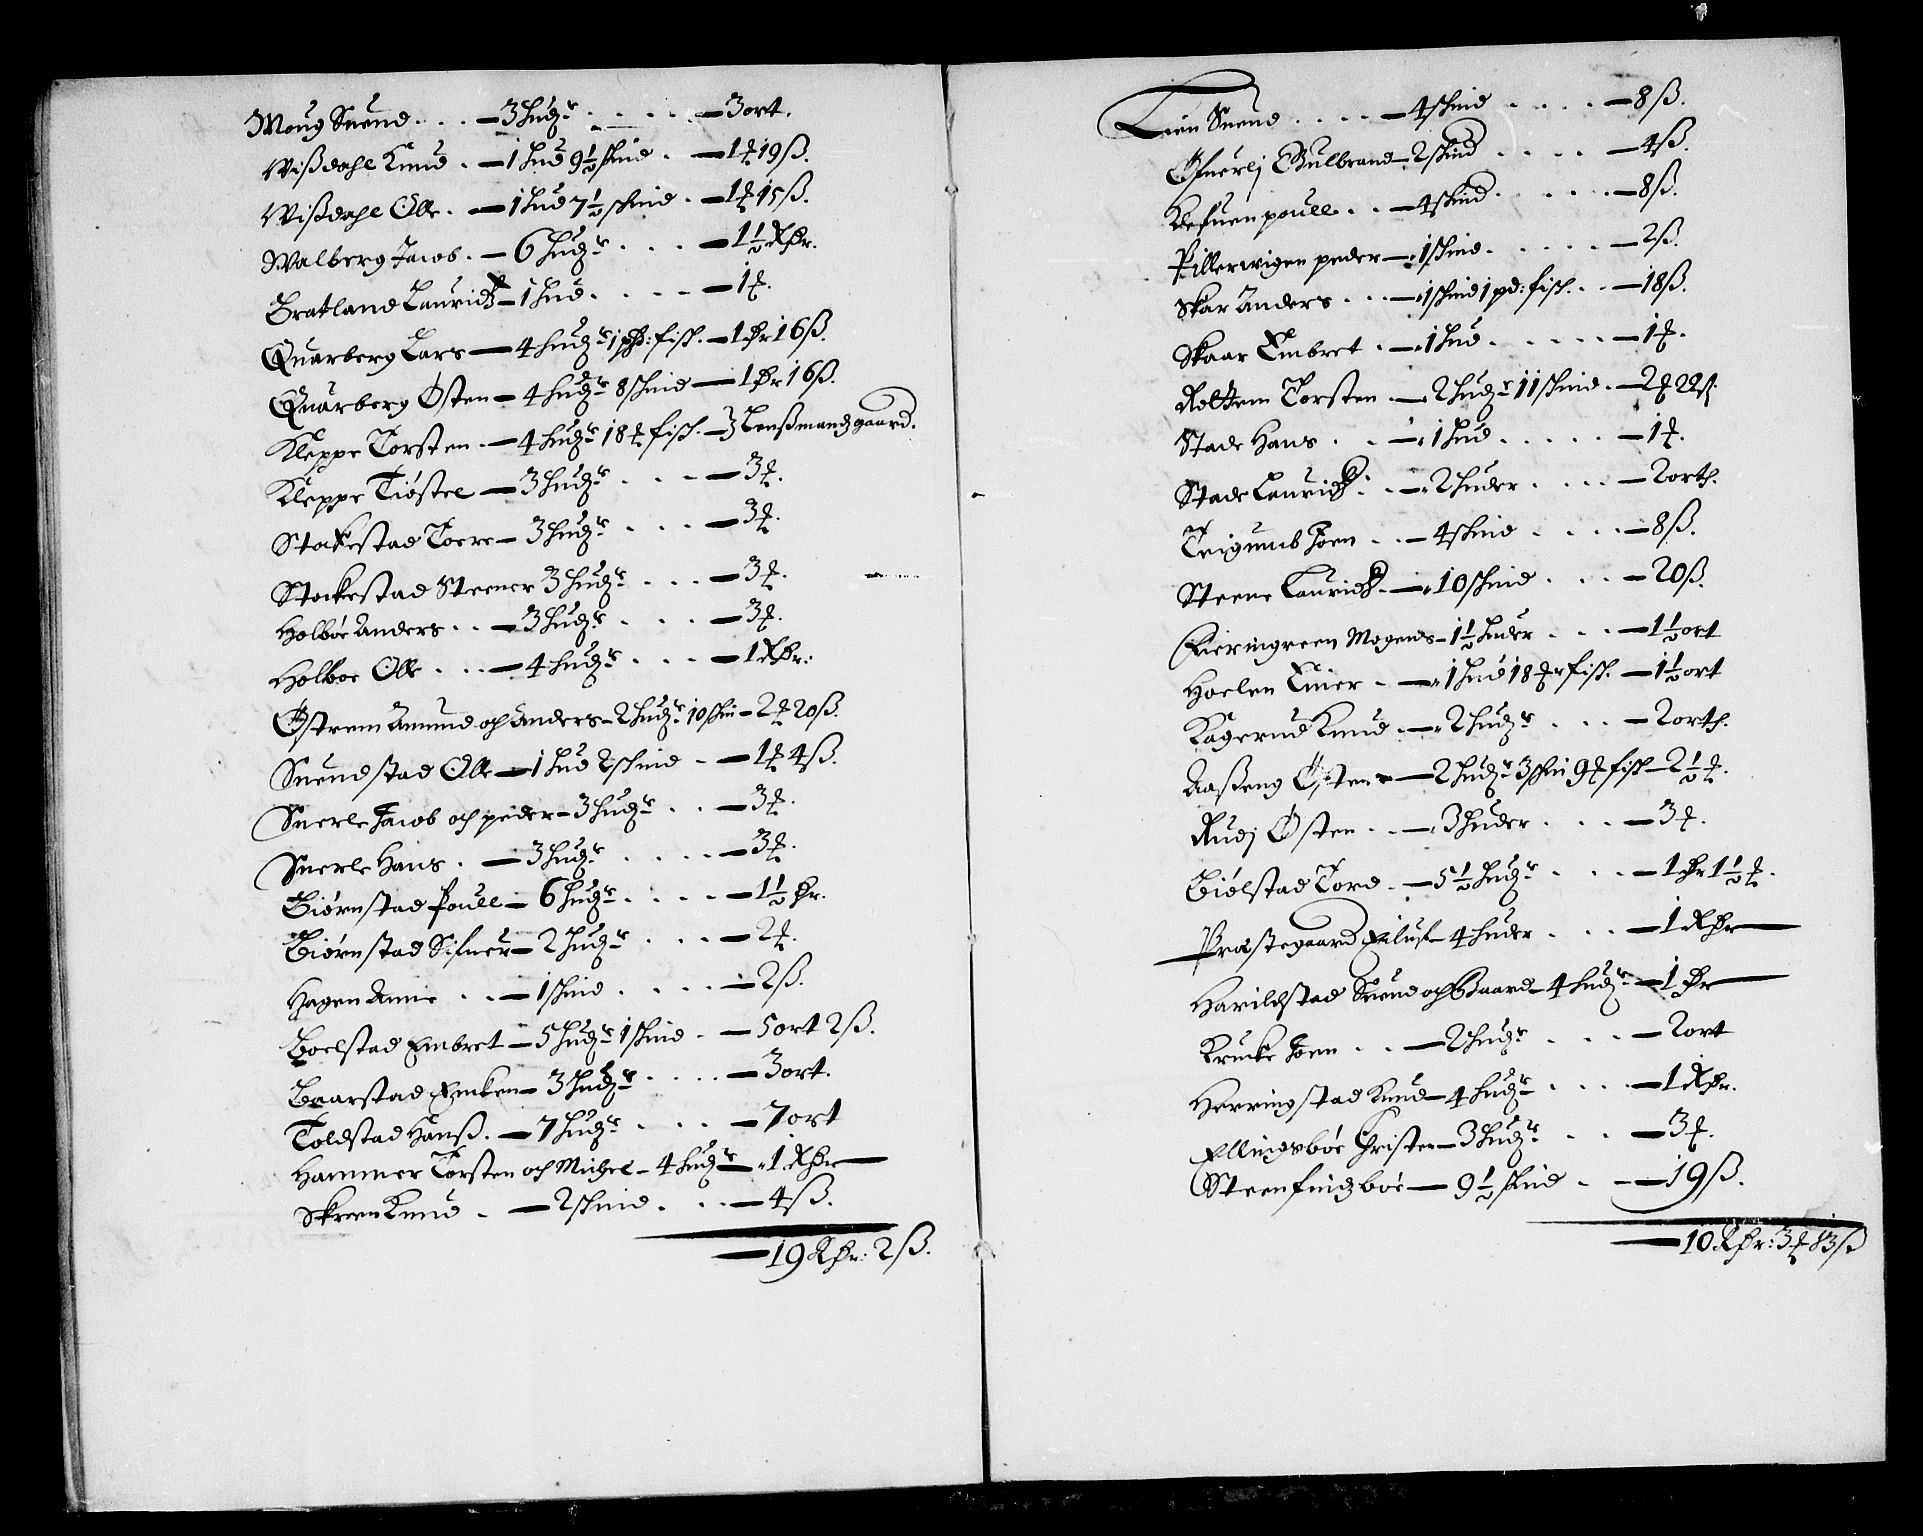 Moug Suend . . . — 3 hudr . . . . . — 3 ort.
Wißdahl Knud . — 1 hud 9½ skind . — 1 ꝼ 19 ß.
Wißdahl Olle . — 1 hud 7½ skind . — 1 ꝼ 15 ß.
Walberg Jacob . — 6 hudr . . . . — 1½ Rdr.
Bratland Lauridz — 1 hud . . . . — 1 ꝼ.
Quarberg Lars — 4 hudr 1 pd: fisk . — 1 dr 16 ß.
Quarberg Østen — 4 hudr 8 skind — 1 dr 16 ß.
Kleppe Torsten . — 4 hudr 18 ꝼ fisk . — Lenßmandz gaard.
Kleppe Tiøstel — 3 hudr . . . — 3 ꝼ.
Stokestad Toere — 3 hudr . . . — 3 ꝼ.
Stockestad Steener 3 hudr . . . — 3 ꝼ.
Holbøe Anders . . — 3 hudr . . . — 3 ꝼ.
Holboe Olle . . . — 4 hudr . . . — 1 Rdr:
Østrem Amund och Anders — 2 hudr 10 skin — 2 ꝼ 20 ß.
Suendstad Olle — 1 hud 2 skind . — 1 ꝼ 4 ß.
Suerle Jacob och peder — 3 hudr . . — 3 ꝼ.
Suerle Hans . — 3 hudr . . . . — 3 ꝼ.
Biørnstad Poull — 6 hudr . . . . — 1½ dr.
Biørnstad Sifuer — 2 hudr . . . — 2 ꝼ.
Hagen Anne . . — 1 skind . . . . — 2 ß.
Boelstad Embret — 5 hudr 1 skind . — 5 ort 2 ß.
Baarstad — 3 hudr . . . . — 3 ort.
Toldstad Hanß . — 7 hudr . . . . — 7 ort
Hammer Torsten och Michel — 4 hudr — 1 Rdr
Skreen Knud . — 2 skind . . . — 4 ß.
— 19 Rdr: 2 ß.
Lien Suend . . . . — 4 skind . . . . — 8 ß.
Ofuerlj Gulbrand — 2 skind . . . . — 4 ß.
Klefuen poull . . — 4 skind . . . . — 8 ß.
Pillerwigen peder — 1 skind . . . . — 2 ß.
Skar Anders . . . — 1 skind 1 pd: fisk . . — 18 ß.
Skaar Embret . — 1 hud . . . . . — 1 ꝼ.
Torsten — 2 hudr 11 skind . — 2 ꝼ 22 ß.
Stade Hans . . . — 1 hud . . . . . — 1 ꝼ.
Stade Lauridz . — 2 huder . . . . — 2 orth.
Joen . . — 4 skind . . . . — 8 ß.
Steene Lauridz . — 10 skind . . . — 20 ß.
Mogens — 1½ huder . . . — 1½ ort
Hoelen Einer . — 1 hud 18 ꝼr fisk . — 1½ ort
Kagerud Knud . — 2 hudr . . . — 2 orth.
Aaßeng Østen — 2 hudr 3 skin 9 ꝼ fisk — 2½ ꝼ.
Rudj Østen . . — 3 huder . . . — 3 ꝼ.
Biølstad Tord . — 5½ hudr . . . — 1 dr 1½ ꝼ.
Præstegaard Eiluf — 4 huder . . . — 1 Rdr
Harildstad Suend och Baard — 4 hudr — 1 dr
Krucke Joen . . — 2 hudr . . . — 2 ort
Herringstad Knud — 4 hudr . . . . — 1 Rdr.
Ellingsbøe Christen — 3 hudr . . — 3 ꝼ.
Steenfindzbøe — 9½ skind . . — 19 ß.
— 10 Rdr: 3 ꝼ 13 ß